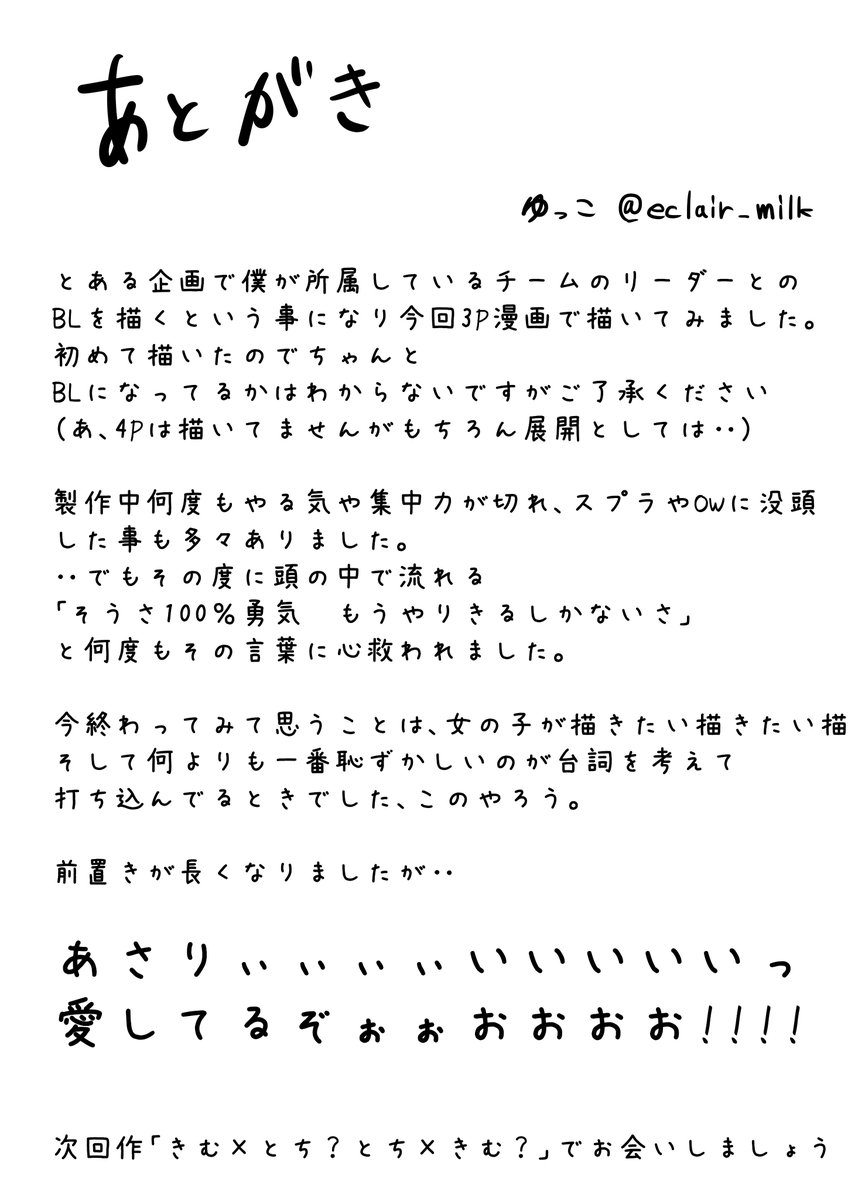 あとがき
ゆっこ @eclair_milk
とある企画で僕が所属しているチームのリーダーとの
BLを描くという事になり今回3P漫画で描いてみました。
初めて描いたのでちゃんと
BLになってるかはわからないですがご了承ください
(あ、4Pは描いてませんがもちろん展開としては‥)
製作中何度もやる気や集中力が切れ、スプラやOWに没頭
した事も多々ありました。
‥でもその度に頭の中で流れる
「そうさ100%勇気　もうやりきるしかないさ」
と何度もその言葉に心救われました。
今終わってみて思うことは、女の子が描きたい描きたい描
そして何よりも一番恥ずかしいのが台詞を考えて
打ち込んでるときでした、このやろう。
前置きが長くなりましたが‥
あさりぃぃぃぃいいいいいっ
愛してるぞぉぉおおおお!!!!
次回作「きむ×とち？とち×きむ？」でお会いしましょう